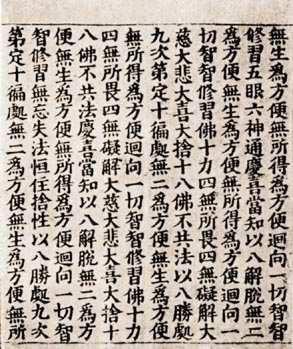 無生為方便無所得為方便迴向一切智智
修習五眼六神通慶喜當知以八解脫無二
為方便無生為方便無所得為方便迴向一
切智智修習佛十力四無所畏四無礙解大
慈大悲大喜大捨十八佛不共法以八勝處
九次第定十徧處無二為方便無生為方便
無所得為方便迴向一切智智修習佛十力
四無所畏四無礙解大慈大悲大喜大捨十
八佛不共法慶喜當知以八解脫無二為方
便無生為方便無所得為方便迴向一切智
智修習無忘失法恒住捨性以八勝處九次
第定十徧處無二為方便無生為方便無所